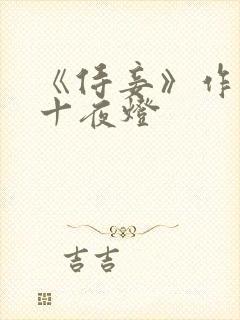 《侍妾》作
十夜燈
吉吉